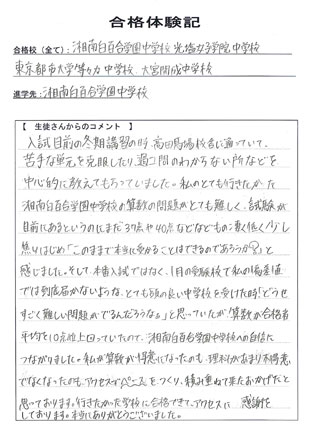 合格体験記
合格校（全て）：湘南白百合学園中学校 光塩女子学院中学校
東京都市大学等々力中学校、大宮開成中学校
進学先：湘南白百合学園中学校
【 生徒さんからのコメント 】
入試目前の冬期講習の時、高田馬場校舎に通っていて、
苦手な単元を克服したり、過去問のわからない所などを
中心的に教えてもらっていました。私のとても行きたかった
湘南白百合学園中学校の算数の問題がとても難しく、試験が
目前にあるというのにまだ37点や40点などなどもの 少し
焦りはじめ「このままで本当に受かることはできるのであろうか？」と
感じました。そして、本番入試ではなく、1月の受験校で私の偏差値
では到底届かないような、とても頭の良い中学校を受けた時「どうせ
すごく難しい問題がでるんだろうなぁ」と思っていたが算数が合格者
平均を10点以上回っていたので、湘南白百合学園中学校への自信に
つながりました。私が算数が得意になったのも、理科があまり不得意
でなくなったのも、アクセスでペースをつくり、積み重ねて来たおかげだと
思っております。行きたかった学校に合格できて、アクセスに 感謝を
しております。本当にありがとうございました。